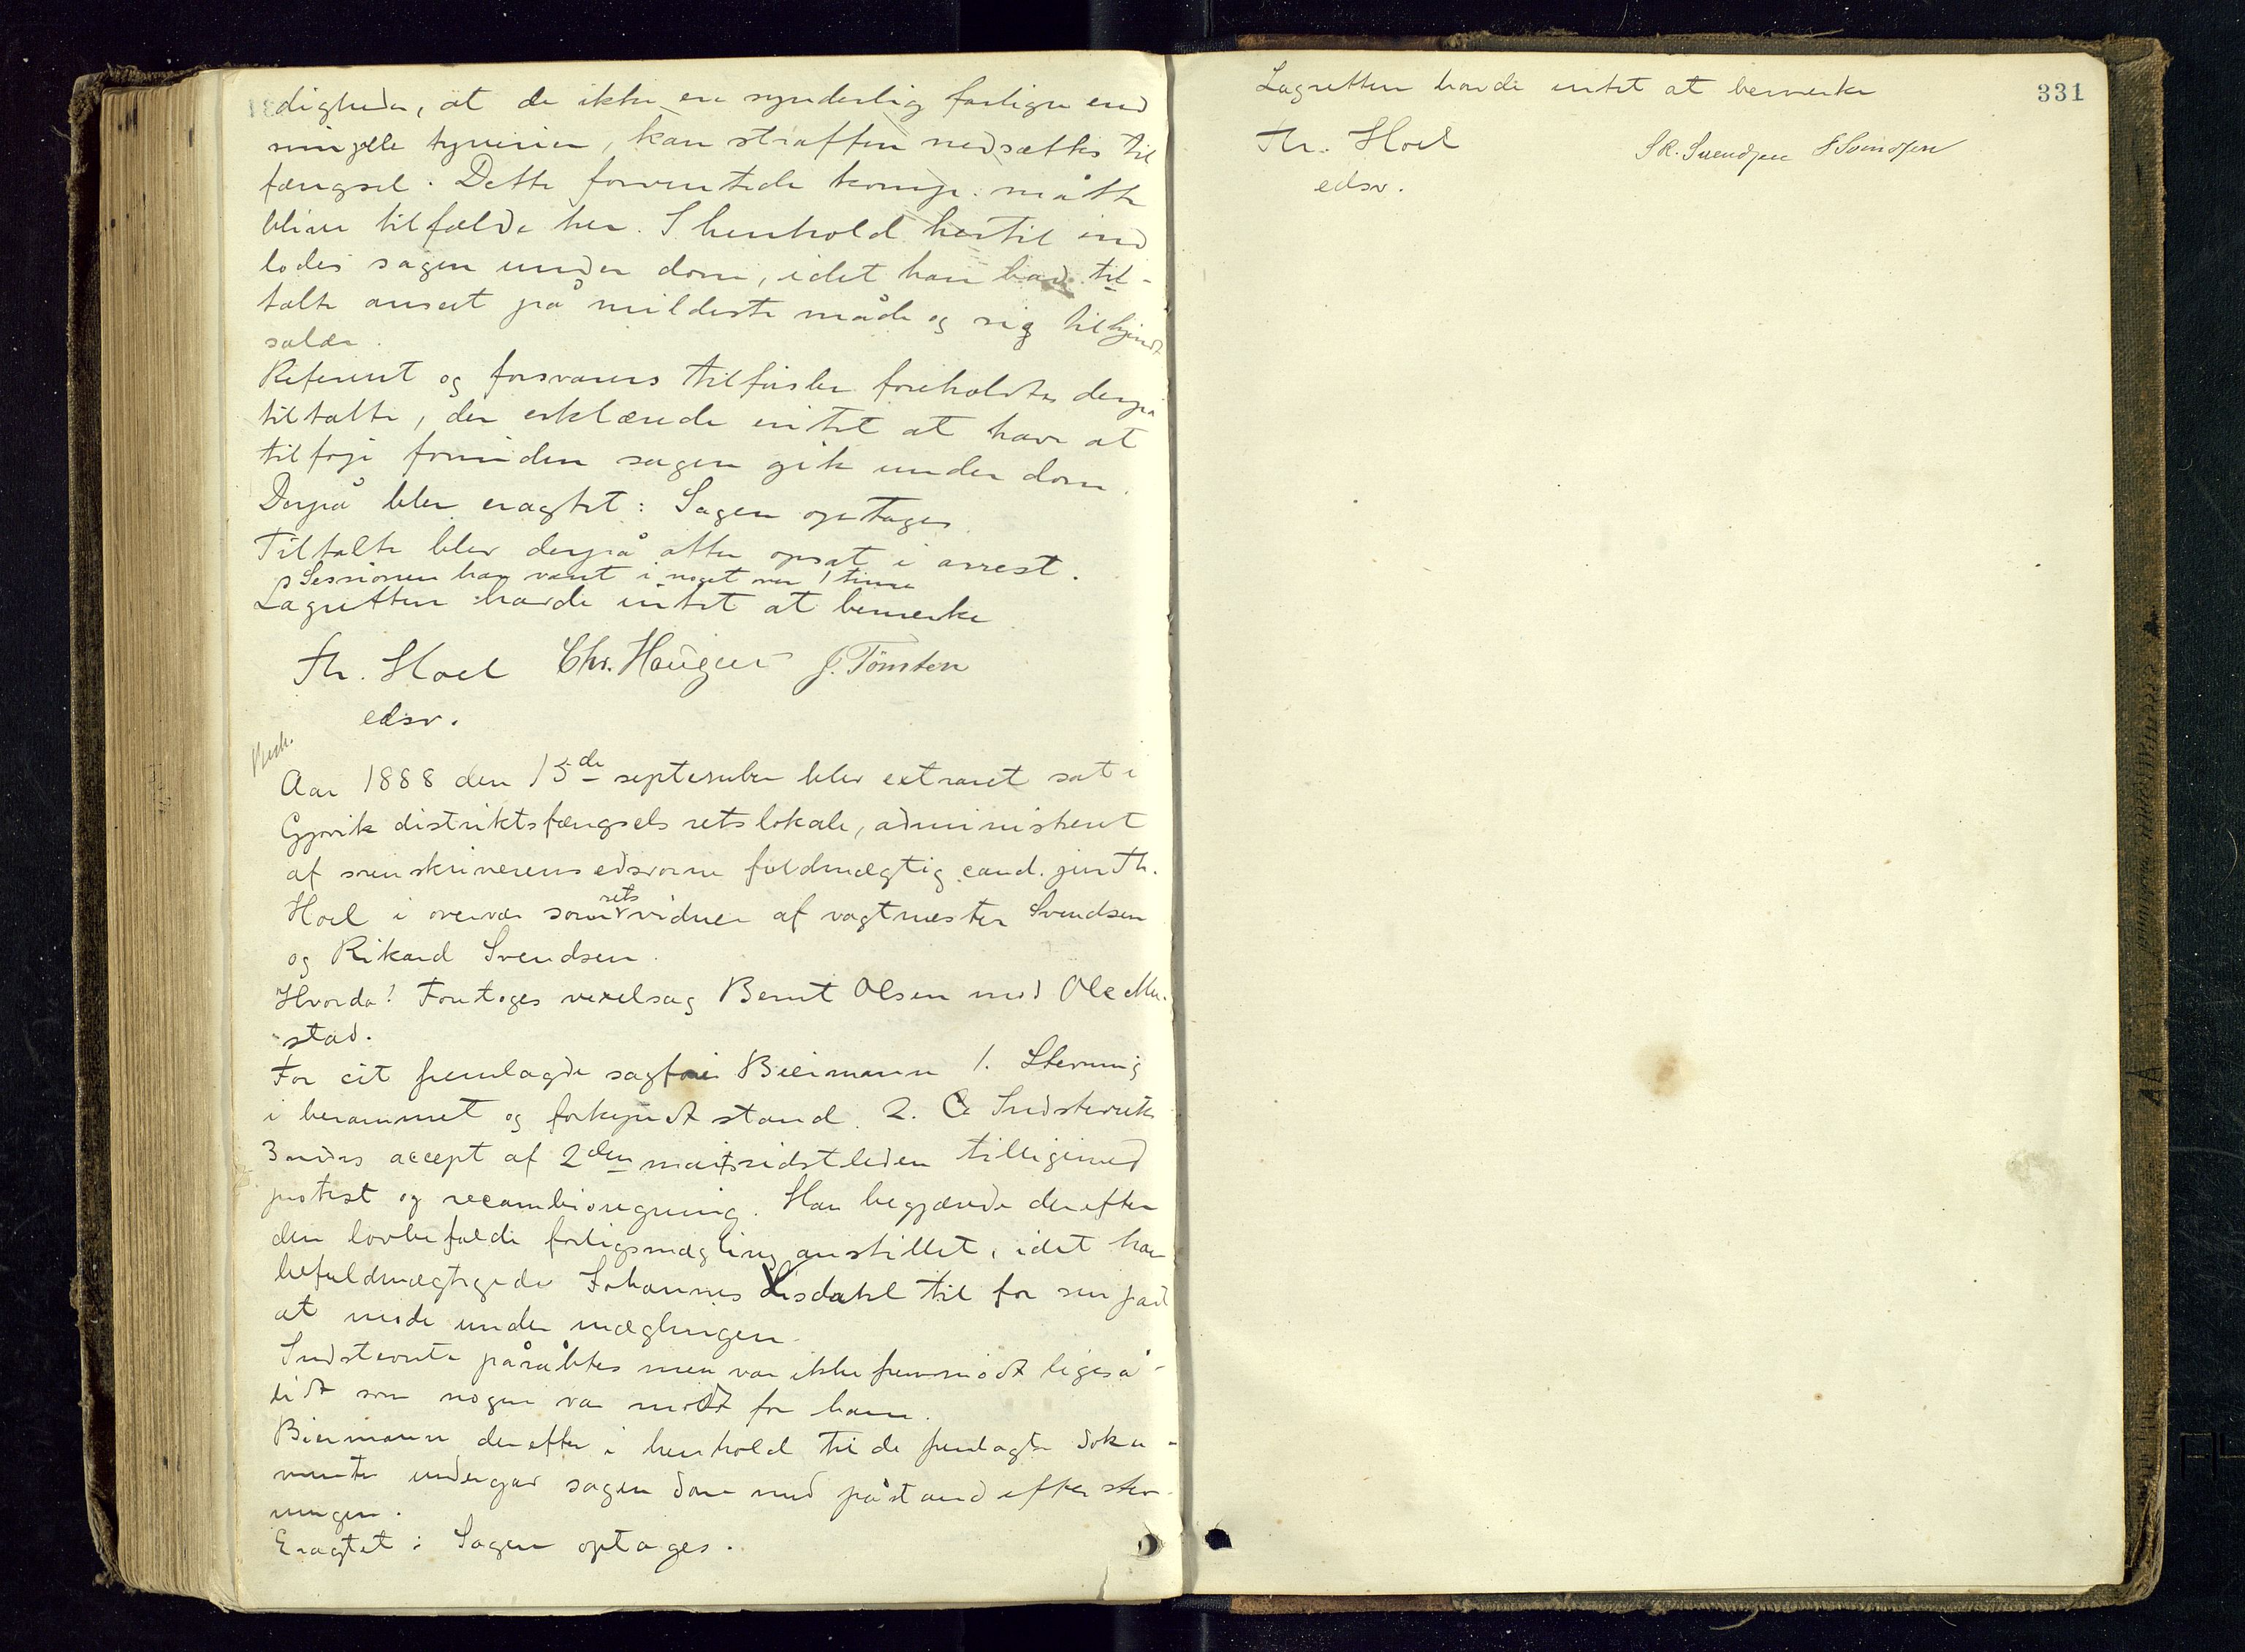 digheder, at de ikke er synderlig farligere end
simple tyverier, kan straffen nedsættes til
fængsel. Dette formentede komp. måtte
blive tilfælde her. I henhold hertil ind
lodes sagen under dom, idet han bad til-
talte anseet på mildeste måde og sig tilkjendt
salær.
Referent og forsvarers tilførsler foreholdtes derpå
tiltalte, der erklærede intet at have at
tilføje forinden sagen gik under dom.
Derpå blev eragtet: Sagen optages
Tiltalte blev derpå atter opsat i arrest.
Sessionen har varet i noget over 1 time
Lagretten havde intet at bemerke
Th. Hoel Chr. Hauger J. Tömten
edsv.
Besk.
Aar 1888 den 15de september blev extraret sat i
Gjøvik distriktsfængsels retslokale, administreret
af sorenskriverens edsvorne fuldmægtig cand. jur Th.
Hoel i overvær som retsvidner af vagtmester Svendsen
og Rikard Svendsen.
Hvorda! Foretoges vexelsag Bernt Olsen mod Ole Mu-
stad.
For cit fremlagde sagfører Biermann 1. Stevning
i berammet og forkyndt stand. 2. Indstevnte
3 mdrs accept af 2den mai sidstleden tilligemed
protest og recambioregning. Han begjærede derefter
den lovbefalede forligsmægling anstillet, idet han
befuldmægtigede Johannes Lisdahl til for sin part
at møde under mæglingen.
Indstevnte påråbtes men var ikke fremmødt ligeså-
lidt som nogen var mødt for ham.
Biermann derefter i henhold til de fremlagte doku-
menter undergav sagen dom med påstand efter stev-
ningen.
Eragtet: Sagen optages.
331
Lagretten havde intet at bemerke
Th. Hoel S R. Svendsen S Svendsen
edsv.